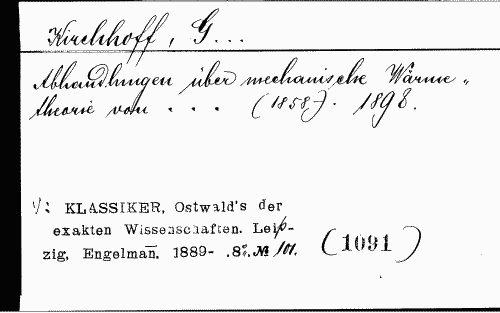 Kirchhoff, G...
Abhandlungen über mechanische Wärme„
theorie von . . . (1858). 1898.
V: KLASSIKER, Ostwald's der
exakten Wissenschaften. Leip-
zig, Engelmañ. 1889- .8°. № 101. (1091)